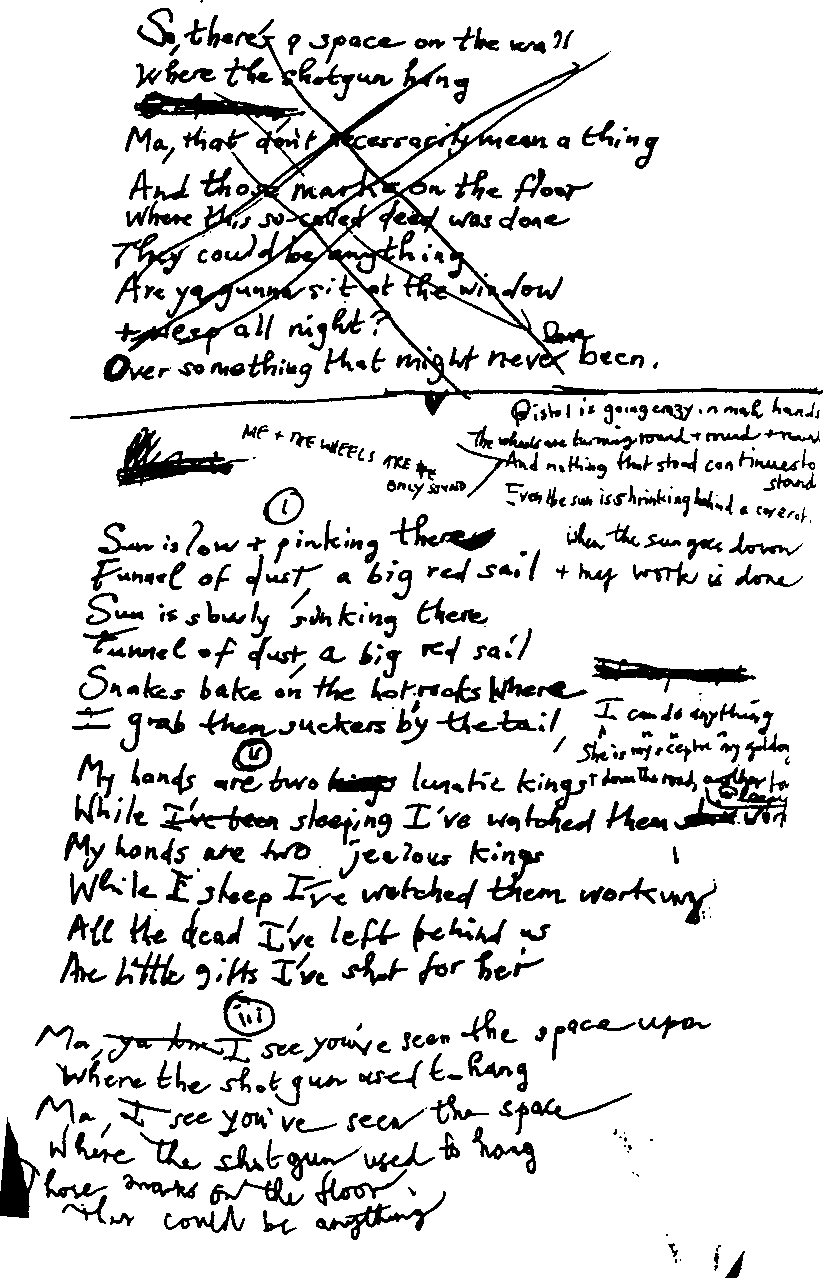 So, there's a space on the wall
Where the shotgun hung
Ma, that don't necessarily mean a thing
And those marks on the floor
Where this so-called deed was done
They could be anything
Are ya gunna sit at the window
+ weep all night?
Over something that might never been.
Pistol is going crazy in mah hands
The wheels are turning round + round + round
And nothing that stood continues to
stand
Even the sun is shrinking behind a
ME + THE WHEELS ARE THE
ONLY SOUND
when the sun goes down
+ my work is done
i
Sun is low + pinking there
Funnel of dust, a big red sail
Sun is slowly sinking there
Funnel of dust, a big red sail
Snakes bake on the hot rocks where
I grab them suckers by the tail
I can do anything
She is my sceptre my golden
down the road, another
ii
My hands are two lunatic kings
While I've been sleeping I've watched them work
My hands are two jealous kings
While I sleep I've watched them working
All the dead I've left behind us
Are little gifts I've shot for her
iii
Ma, I see you've seen the space upon
Where the shotgun used to hang
Ma, I see you've seen the space
Where the shotgun used to hang
marks on the floor
could be anything